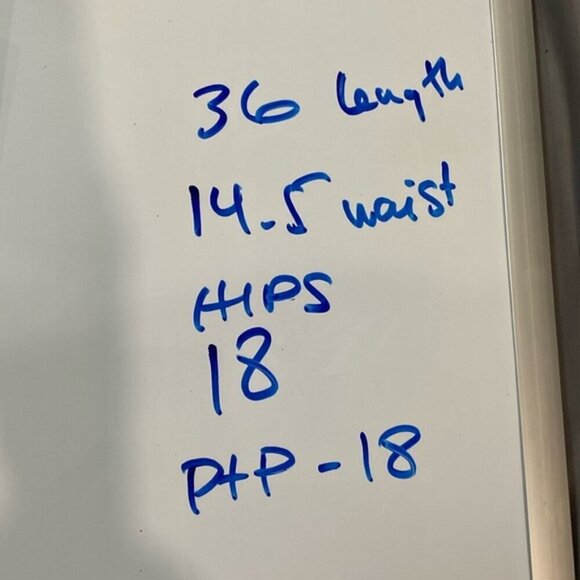 36 length
14.5 waist
HIPS
18
PtP - 18